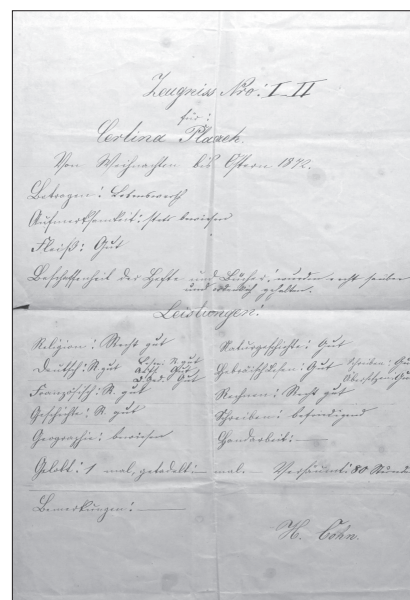 Zeugniss Nro: I–II
für:
Cerlina Placzek.
Von Weihnachten bis Ostern 1872.
Betragen: Lobenswerth
Aufmerksamkeit: stets bewiesen
Fleiß: Gut
Beschaffenheit der Hefte und Bücher: wurden recht sauber
und ordentlich gehalten.
Leistungen.
Religion: Recht gut
Deutsch: R. gut
Gut
Gut
Französisch: R. gut
Geschichte: R. gut
Geographie: bewiesen
Naturgeschichte: Gut
Hebräischlesen: Gut Schreiben: Gut
Übersetzen: Gut
Rechnen: Recht gut
Schreiben: befriedigend
Handarbeit: —
Gelobt: 1 mal, getadelt: — mal. — Versäumt: 80 Stunden
Bemerkungen: —
H. Cohn.